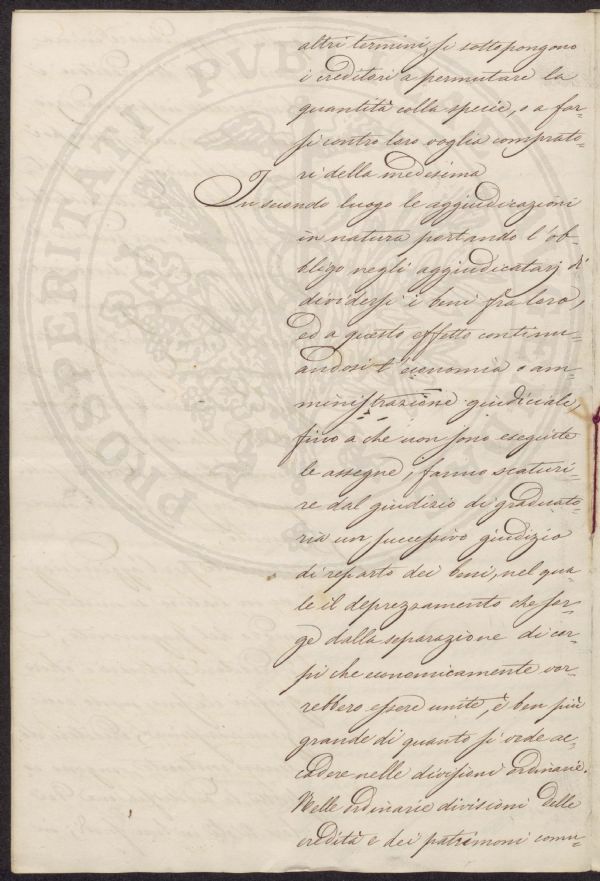 altri termini, si sottopongono
i creditori a permutare la
quantità colla specie, o a far=
si contro loro voglia comprato=
ri della medesima
In secondo luogo le aggiudicazioni
in natura portando l'ob=
bligo negli aggiudicatarj di
dividersi i beni fra loro,
ed a questo effetto continu=
andosi l'economia o am=
ministrazione giudiciale,
fino a che non sono eseguite
le assegne, fanno scaturi=
re dal giudizio di graduato=
ria un successivo giudizio
di reparto dei beni, nel qua=
le il deprezzamento che sor=
ge dalla separazione di cor=
pi che economicamente vor=
rebbero essere unite, è ben più
grande di quanto si vede ac=
cadere nelle divisioni ordinarie.
Nelle ordinarie divisioni delle
eredità e dei patrimoni comu=
PROSPERITATI PUBLICAE